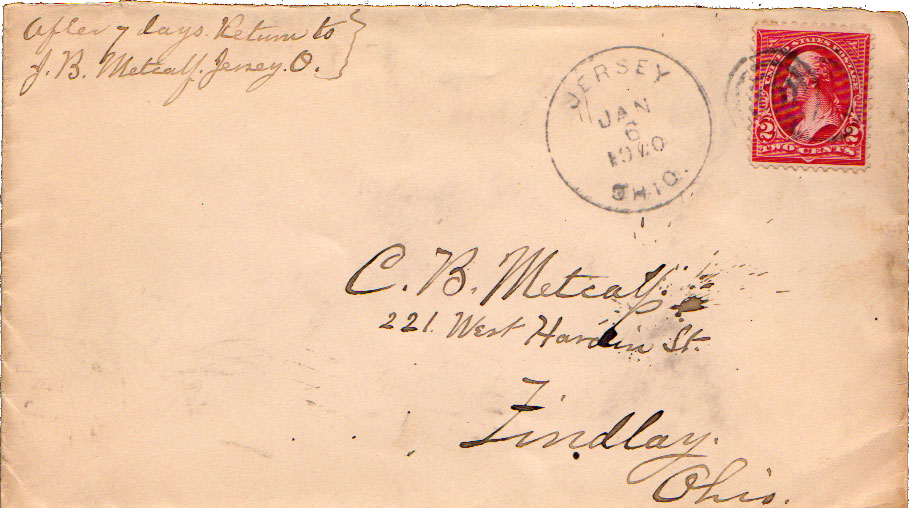 After 7 days. Return to
J. B. Metcalf. Jersey. O.
JERSEY
JAN
6
OHIO.
UNITED STATES POSTAGE
2 2
TWO CENTS
C. B. Metcalf.
221. West Hardin St.
Findlay.
Ohio.